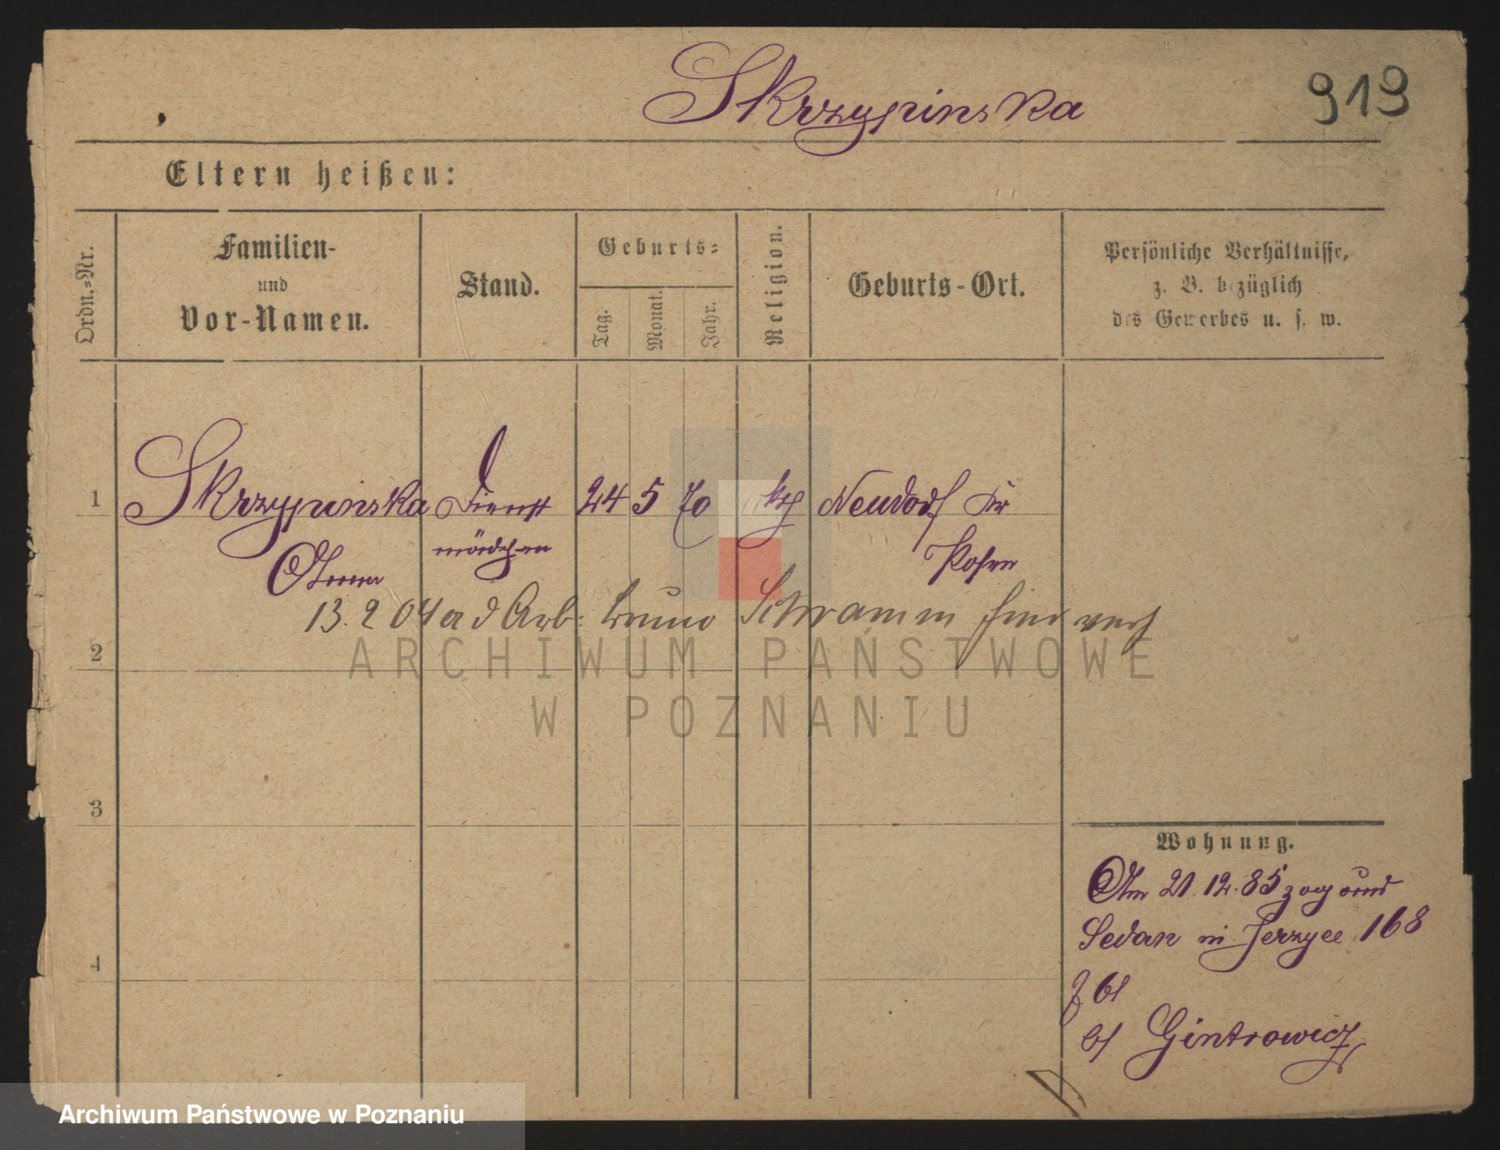 Skrzypinska
919
Eltern heißen:
Ordn.=Nr.
Familien-
und
Vor-Namen.
Stand.
Geburts=
Tag.
Monat.
Jahr.
Religion.
Geburts-Ort.
Persönliche Verhältnisse,
z. B. bezüglich
des Gewerbes u. s. w.
1 Skrzypinska Dienst 24 5 70 kth Neudorf Kr
Anna mädchen Posen
13. 2 04 a d Arb. Bruno Schramm hier verh
2
ARCHIWUM PAŃSTWOWE
W POZNANIU
3
Wohnung.
Am 21. 12. 85 zog
Sedan in Jerzyce 168
4
bf Gintrowicz
Archiwum Państwowe w Poznaniu